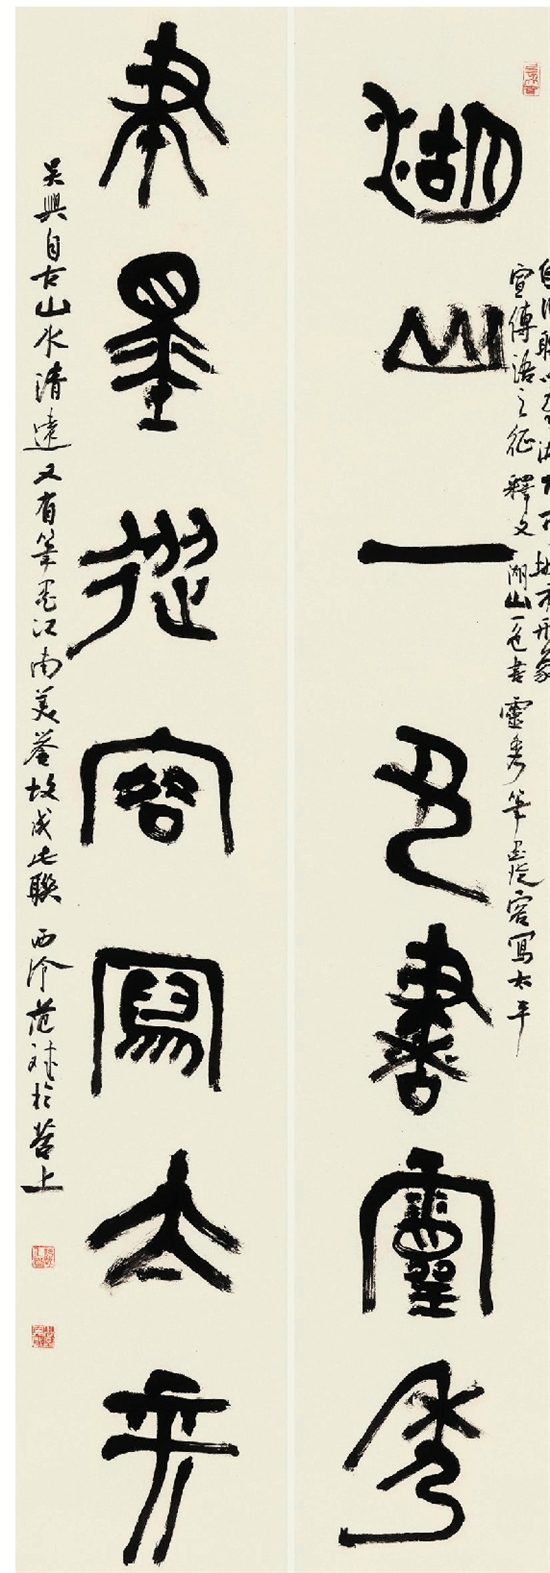 湖山一色書靈秀
自聯以應湖城市形象
宣傳語之征 釋文 湖山一色書靈秀 筆墨從容寫太平
筆墨從容寫太平
吳興自古山水清遠又有筆墨江南美譽故成此聯 西泠范斌於苕上